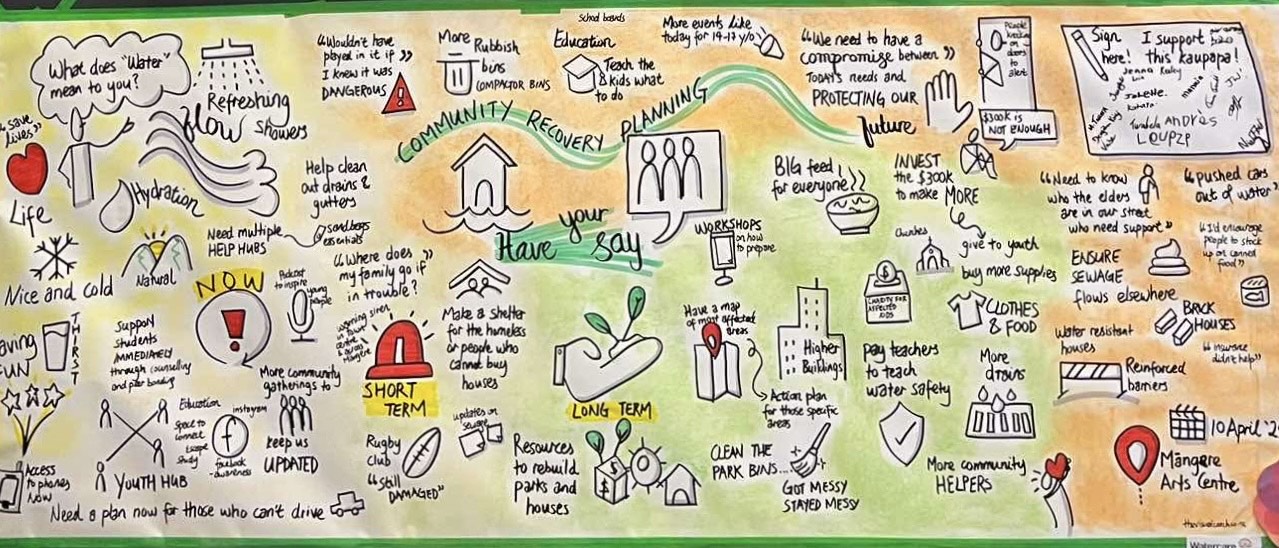 What does "Water"
mean to you?
Refreshing
flow showers
"save
lives"
Life
Hydration
Nice and cold
Natural
Help clean
out drains &
gutters
Need multiple
HELP HUBS
sandbags
essentials
"Wouldn't have
played in it if"
I knew it was
DANGEROUS
More Rubbish
bins
COMPACTOR BINS
School boards
Education
Teach the
kids what
to do
More events like
today for 14-17 y/o
COMMUNITY RECOVERY PLANNING
Have your say
"We need to have a
compromise between"
TODAY'S needs and
PROTECTING OUR
future
People
knocking
on
doors
to
alert
$300K IS
NOT ENOUGH
Sign
here!
I support
this kaupapa!
ANDRES
BIG feed
for everyone
INVEST
the $300K
to make MORE
Churches
give to youth
buy more supplies
CHARITY FOR
AFFECTED
KIDS
CLOTHES
& FOOD
"Need to know
who the elders
are in our street
who need support"
"pushed cars
out of water"
ENSURE
SEWAGE
flows elsewhere
"I'd encourage
people to stock
up on canned
food"
BRICK
HOUSES
"insurance
didn't help"
Water resistant
houses
Reinforced
barriers
NOW
!
Podcast
to inspire
young
people
"Where does
my family go if"
in trouble?
warning siren
in town
centre
& across
Mangere
SHORT
TERM
Make a shelter
for the homeless
or people who
cannot buy
houses
WORKSHOPS
on how
to prepare
Have a map
of most affected
areas
Action plan
for those specific
areas
Higher
Buildings
Pay teachers
to teach
water safety
More
drains
LONG TERM
THIRST
Support
students
IMMEDIATELY
through counselling
and peer bonding
More community
gatherings to
keep us
UPDATED
Education
Space to
connect
escape
study
instagram
facebook
-awareness
YOUTH HUB
Access
to phones
NOW
Need a plan now for those who can't drive
Rugby
Club
"Still
DAMAGED"
updates on
sewage
Resources
to rebuild
parks and
houses
CLEAN THE
PARK BINS...
GOT MESSY
STAYED MESSY
More community
HELPERS
10 April '2
Māngere
Arts Centre
Watercare